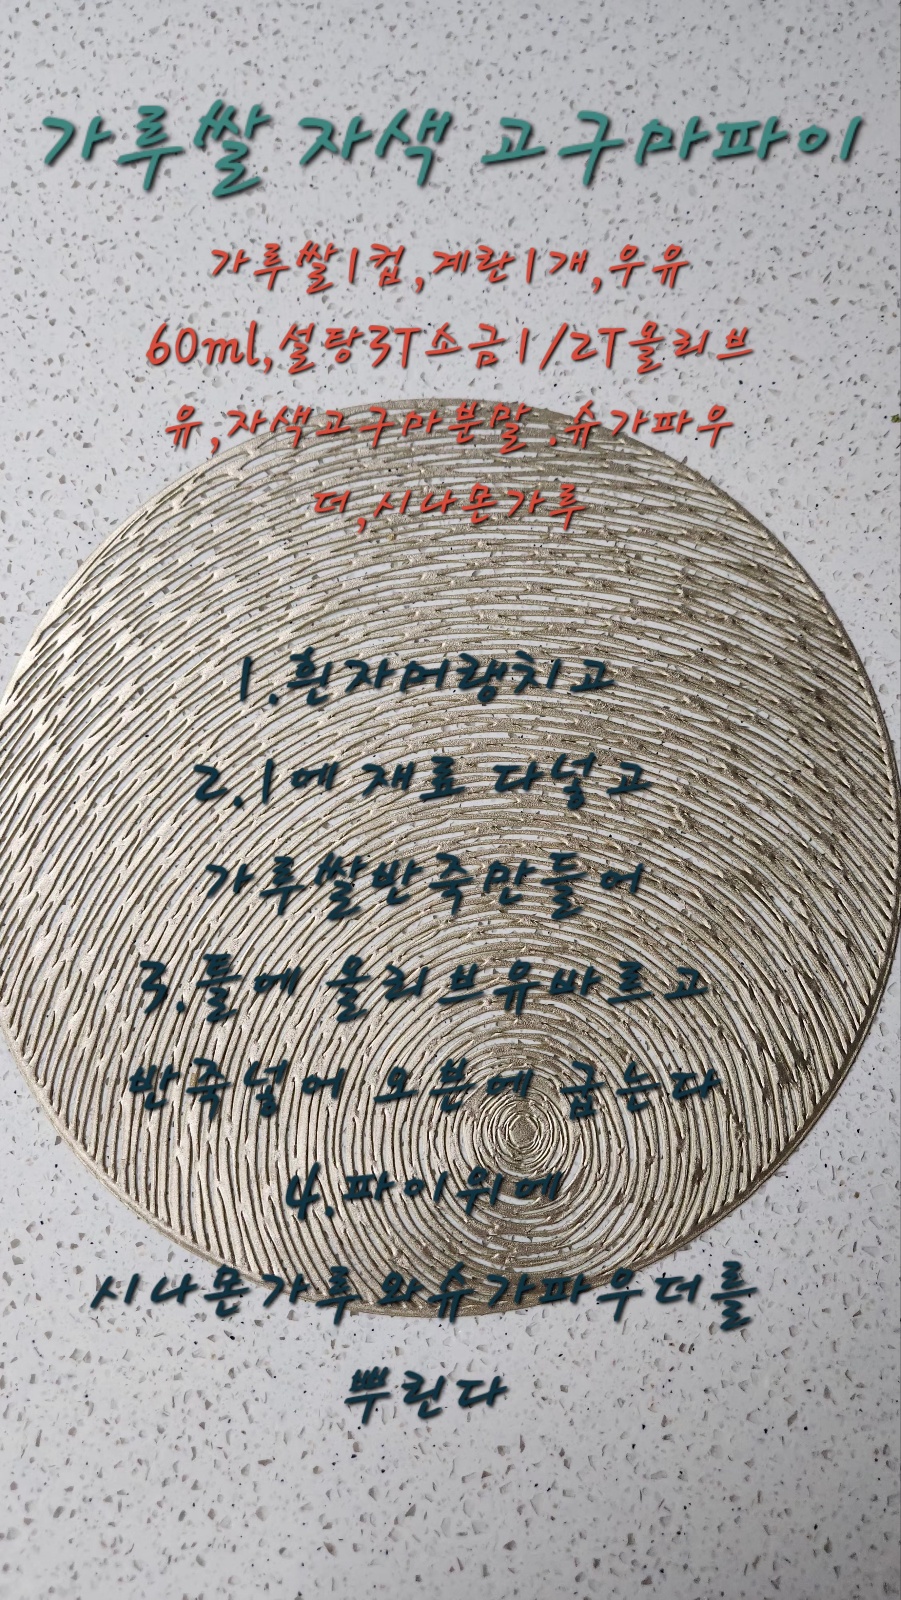 가루쌀 자색 고구마파이
가루쌀1컵,계란1개,우유
60ml,설탕3T소금1/2T올리브
유,자색고구마분말.슈가파우
더,시나몬가루
1.흰자머랭치고
2.1에 재료 다넣고
가루쌀반죽만들어
3.틀에 올리브유바르고
반죽넣어 오븐에 굽는다
4.파이위에
시나몬가루와슈가파우더를
뿌린다